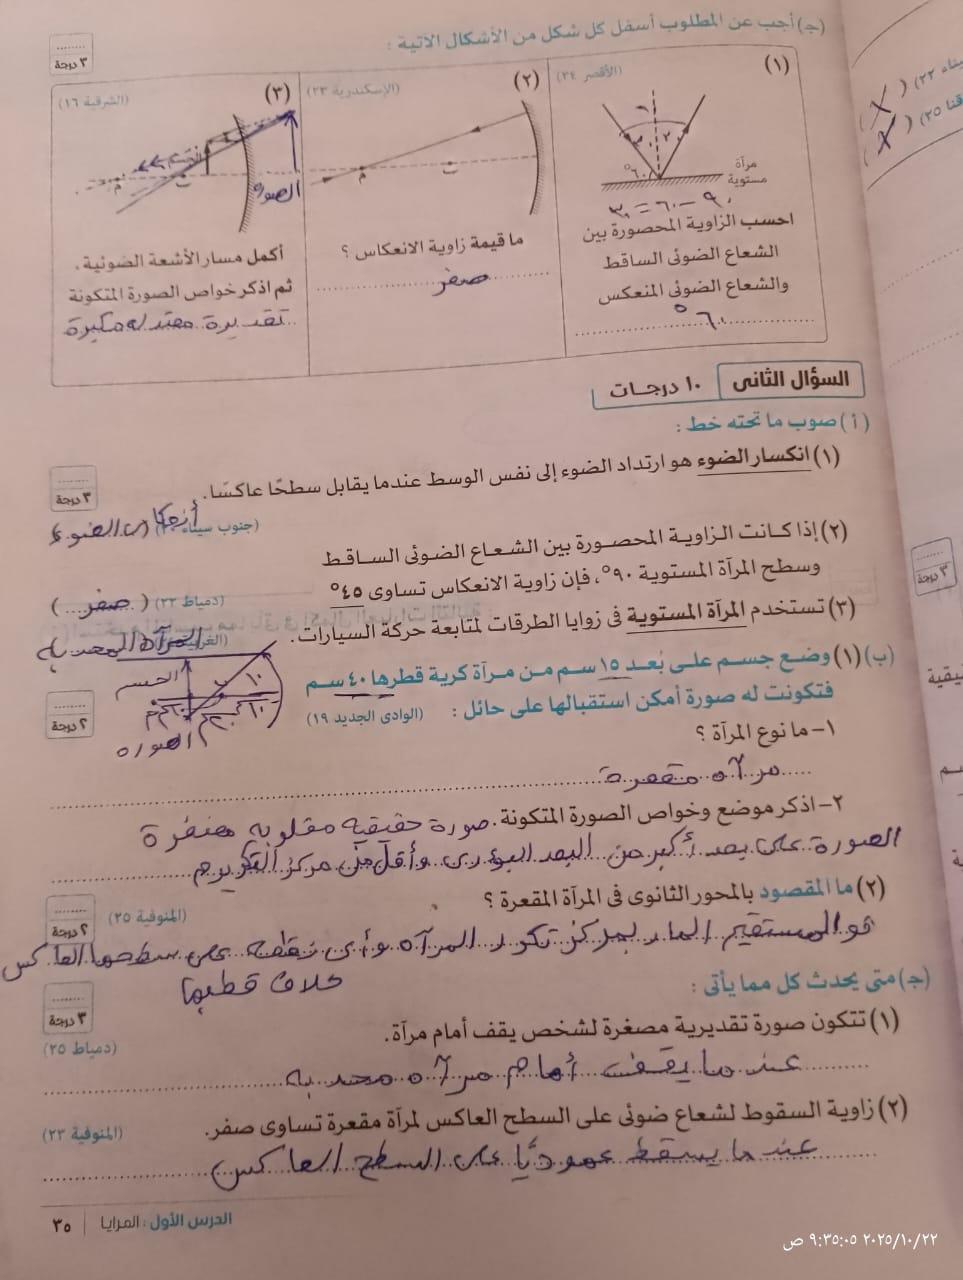 (جـ) أجب عن المطلوب أسفل كل شكل من الأشكال الآتية :
٣ درجة
(١) (الأقصر ٢٤)
٦٠°
مرآة
مستوية
٩٠ - ٦٠ = ٣٠
احسب الزاوية المحصورة بين
الشعاع الضوئى الساقط
والشعاع الضوئى المنعكس
٦٠°
(٢) (الإسكندرية ٢٣)
م
ما قيمة زاوية الانعكاس ؟
صفر
(٣) (الشرقية ١٦)
الصورة
م
أكمل مسار الأشعة الضوئية،
ثم اذكر خواص الصورة المتكونة
تقديرية معتدلة مكبرة
السؤال الثانى ١٠ درجات
(أ) صوب ما تحته خط :
٣ درجة
(١) انكسار الضوء هو ارتداد الضوء إلى نفس الوسط عندما يقابل سطحًا عاكسًا.
(جنوب سيناء
أنعكاس الضوء
(٢) إذا كانت الزاوية المحصورة بين الشعاع الضوئى الساقط
وسطح المرآة المستوية ٩٠°، فإن زاوية الانعكاس تساوى ٤٥°
(دمياط ٢٢) (صفر)
(٣) تستخدم المرآة المستوية فى زوايا الطرقات لمتابعة حركة السيارات.
(الغربية
المرآة المحدبة
(ب) (١) وضع جسم على بُعد ١٥ سم من مرآة كرية قطرها ٤٠ سم
فتكونت له صورة أمكن استقبالها على حائل : (الوادى الجديد ١٩)
٢ درجة
الجسم
١٠
الصورة
١- ما نوع المرآة ؟
مرآه مقعرة
٢- اذكر موضع وخواص الصورة المتكونة. صورة حقيقيه مقلوبه
الصورة على بعد أكبر من البعد البؤرى وأقل من مركز التكور م
(٢) ما المقصود بالمحور الثانوى فى المرآة المقعرة ؟
(المنوفية ٢٥)
٢ درجة
هو المستقيم المار بمركز تكور المرآه وأى نقطه على سطحها العاكس
خلاف قطبها
(جـ) متى يحدث كل مما يأتى :
٣ درجة
(١) تتكون صورة تقديرية مصغرة لشخص يقف أمام مرآة.
(دمياط ٢٥)
عندما يقف أمام مرآه محدبه
(٢) زاوية السقوط لشعاع ضوئى على السطح العاكس لمرآة مقعرة تساوى صفر.
(المنوفية ٢٣)
عندما يسقط عموديًا على السطح العاكس
الدرس الأول : المرايا ٣٥
٢٠٢٥/١٠/٢٢ ٩:٣٥:٠٥ ص
٢٢) (X)
قنا ٢٥) (X)
٣ درجة